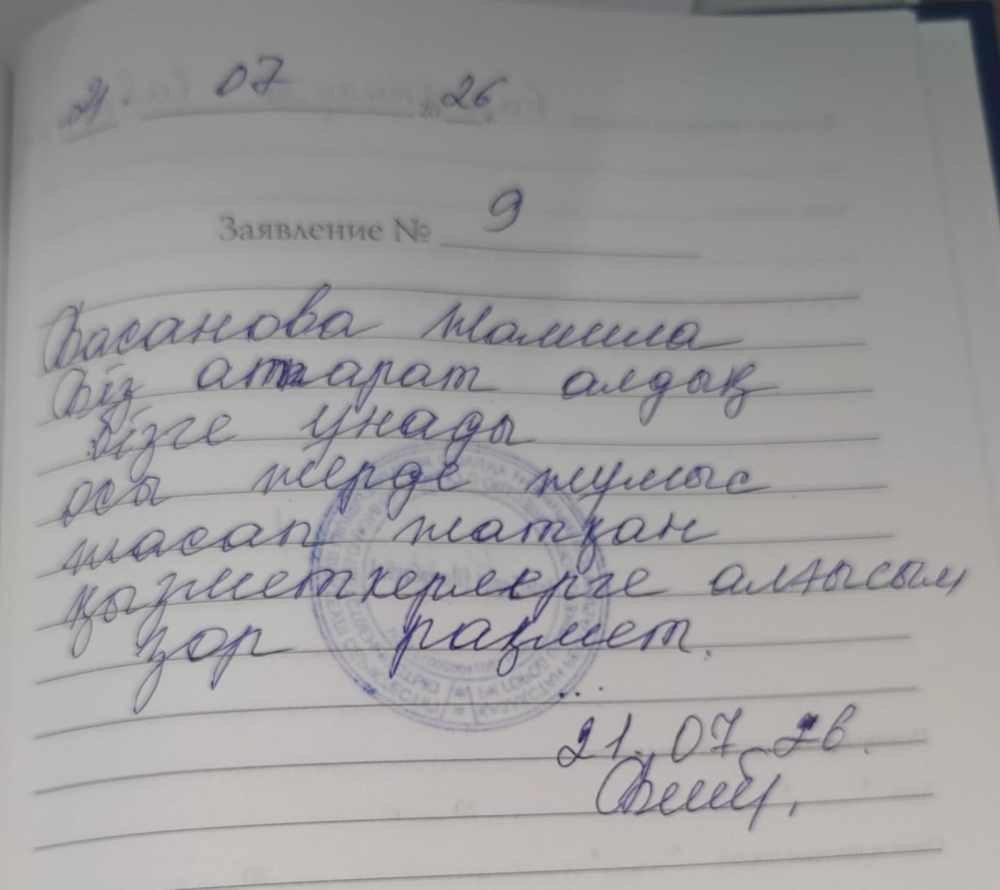 21 07 20 26
Заявление № 9
Васанова Жамила
Біз аппарат алдық
бізге ұнады
осы жерде жұмыс
жасап жатқан
қызметкерлерге алғысым
зор рақмет.
21. 07 26.